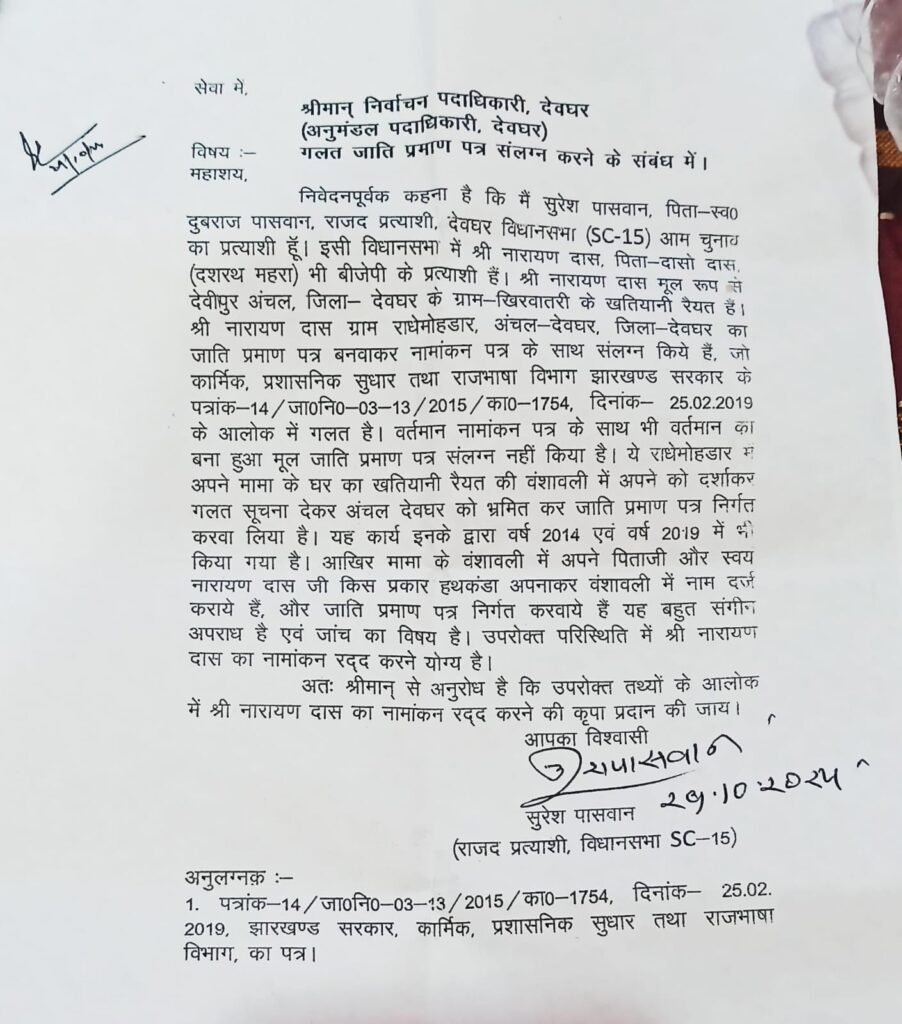 सेवा में,
श्रीमान् निर्वाचन पदाधिकारी, देवघर
(अनुमंडल पदाधिकारी, देवघर)
विषय :– गलत जाति प्रमाण पत्र संलग्न करने के संबंध में।
महाशय,
निवेदनपूर्वक कहना है कि मैं सुरेश पासवान, पिता–स्व0
दुबराज पासवान, राजद प्रत्याशी, देवघर विधानसभा (SC-15) आम चुनाव
का प्रत्याशी हूँ। इसी विधानसभा में श्री नारायण दास, पिता–दासो दास,
(दशरथ महरा) भी बीजेपी के प्रत्याशी हैं। श्री नारायण दास मूल रूप से
देवीपुर अंचल, जिला– देवघर के ग्राम–खिरवातरी के खतियानी रैयत हैं।
श्री नारायण दास ग्राम राधेमोहडार, अंचल–देवघर, जिला–देवघर का
जाति प्रमाण पत्र बनवाकर नामांकन पत्र के साथ संलग्न किये हैं, जो
कार्मिक, प्रशासनिक सुधार तथा राजभाषा विभाग झारखण्ड सरकार के
पत्रांक–14/जा0नि0–03–13/2015/का0–1754, दिनांक– 25.02.2019
के आलोक में गलत है। वर्तमान नामांकन पत्र के साथ भी वर्तमान का
बना हुआ मूल जाति प्रमाण पत्र संलग्न नहीं किया है। ये राधेमोहडार में
अपने मामा के घर का खतियानी रैयत की वंशावली में अपने को दर्शाकर
गलत सूचना देकर अंचल देवघर को भ्रमित कर जाति प्रमाण पत्र निर्गत
करवा लिया है। यह कार्य इनके द्वारा वर्ष 2014 एवं वर्ष 2019 में भी
किया गया है। आखिर मामा के वंशावली में अपने पिताजी और स्वय
नारायण दास जी किस प्रकार हथकंडा अपनाकर वंशावली में नाम दर्ज
कराये हैं, और जाति प्रमाण पत्र निर्गत करवाये हैं यह बहुत संगीन
अपराध है एवं जांच का विषय है। उपरोक्त परिस्थिति में श्री नारायण
दास का नामांकन रद्द करने योग्य है।
अतः श्रीमान् से अनुरोध है कि उपरोक्त तथ्यों के आलोक
में श्री नारायण दास का नामांकन रद्द करने की कृपा प्रदान की जाय।
आपका विश्वासी
सुरेश पासवान
(राजद प्रत्याशी, विधानसभा SC–15)
अनुलग्नक़ :–
1. पत्रांक–14/जा0नि0–03–13/2015/का0–1754, दिनांक– 25.02.
2019, झारखण्ड सरकार, कार्मिक, प्रशासनिक सुधार तथा राजभाषा
विभाग, का पत्र।